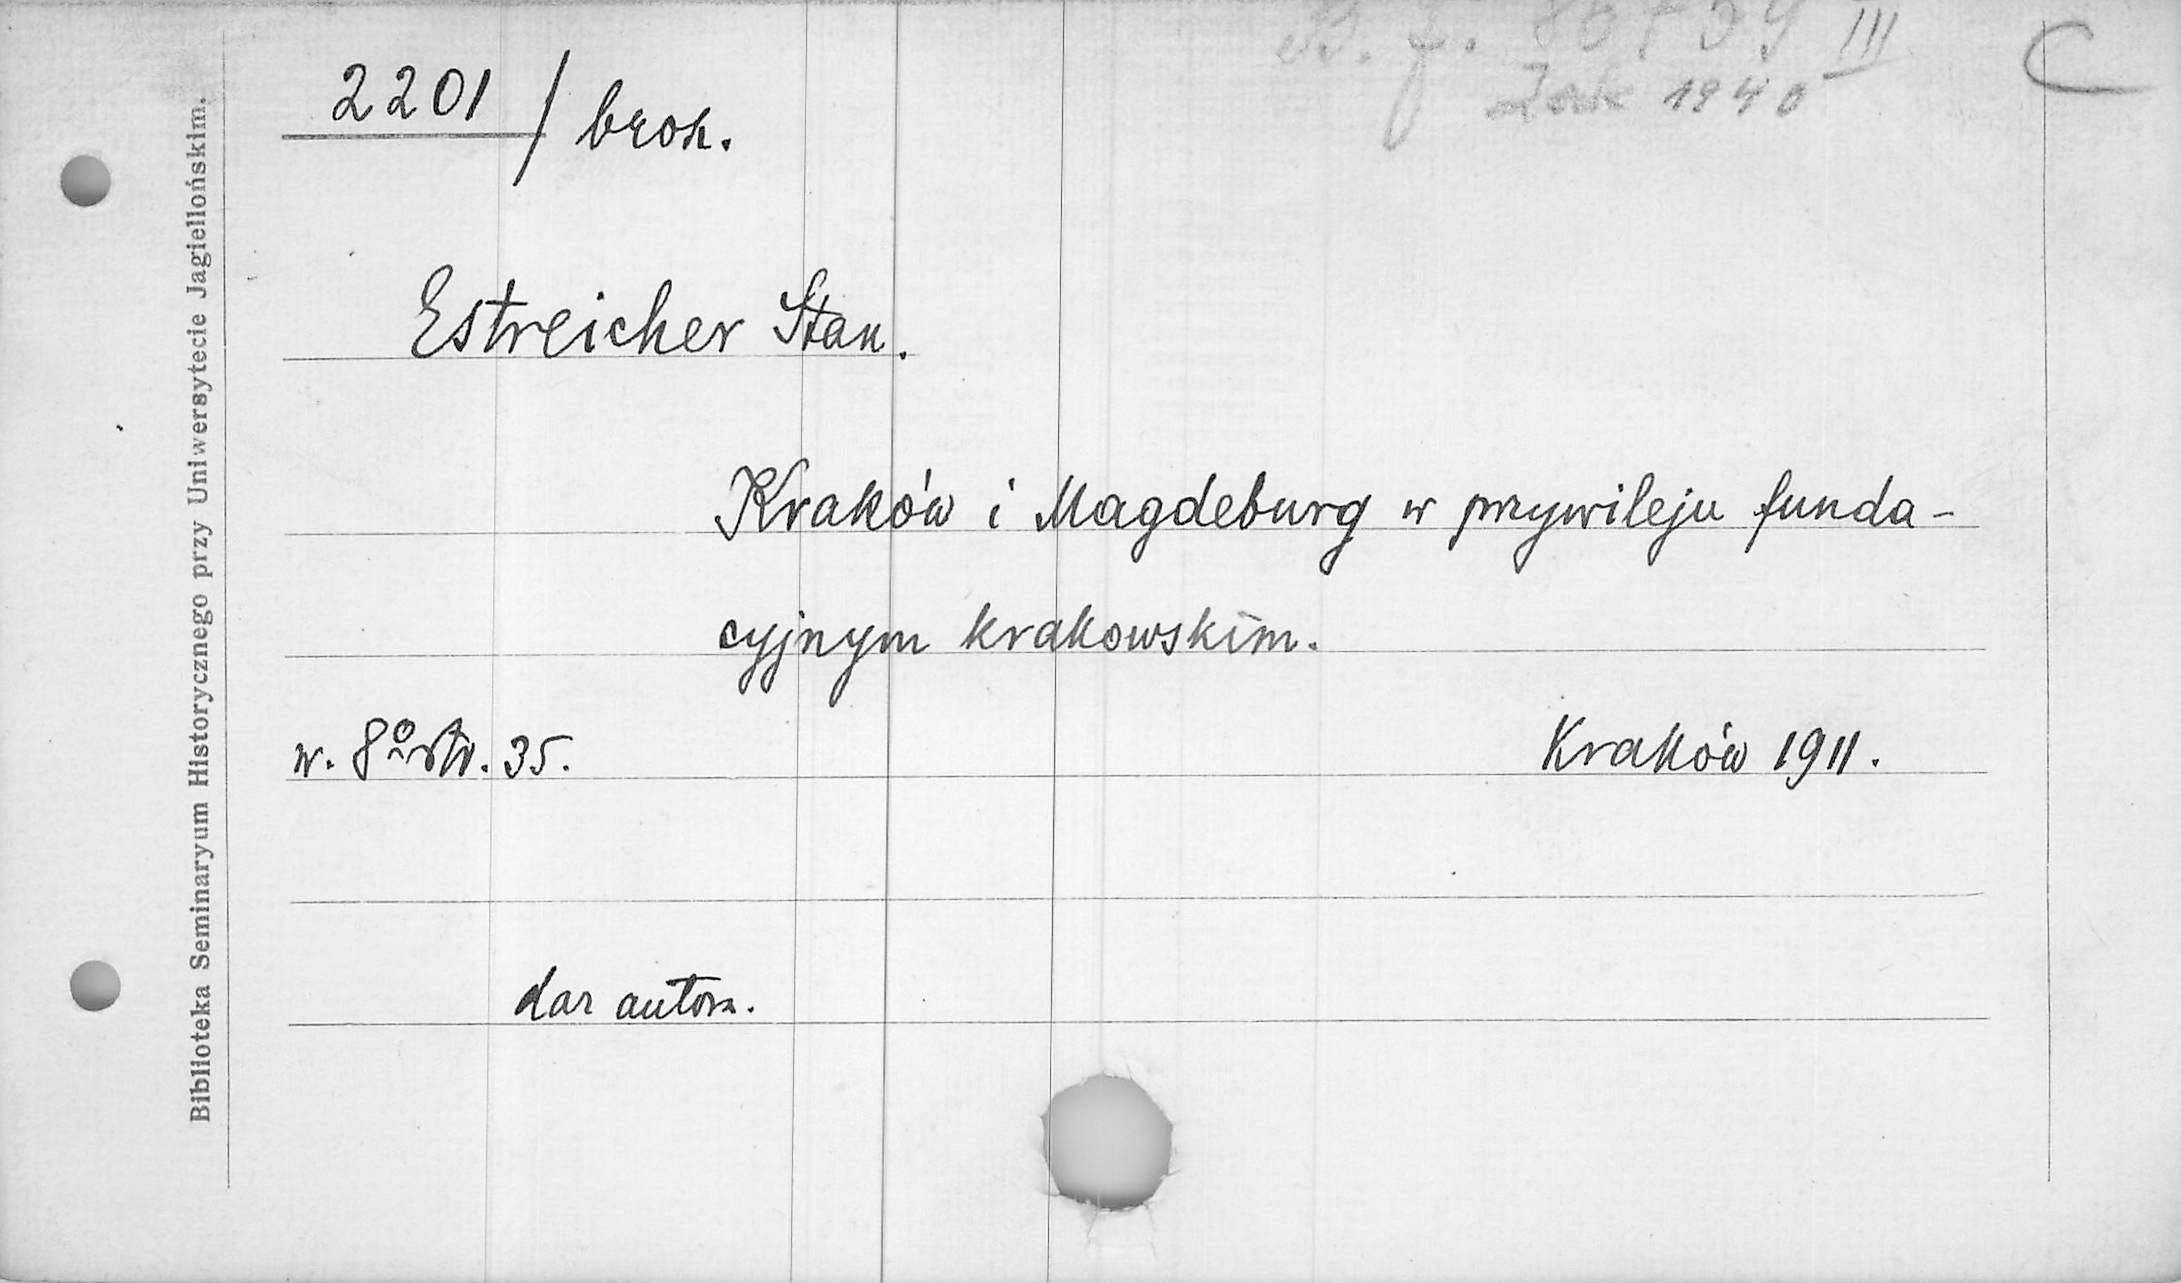 B. J. III
Zak 1940
C
2201 / brosz.
Estreicher Stan.
Kraków i Magdeburg w przywileju funda-
cyjnym krakowskim.
w. 8º str. 35.
Kraków 1911.
dar autora.
Biblioteka Seminaryum Historycznego przy Uniwersytecie Jagiellońskim.